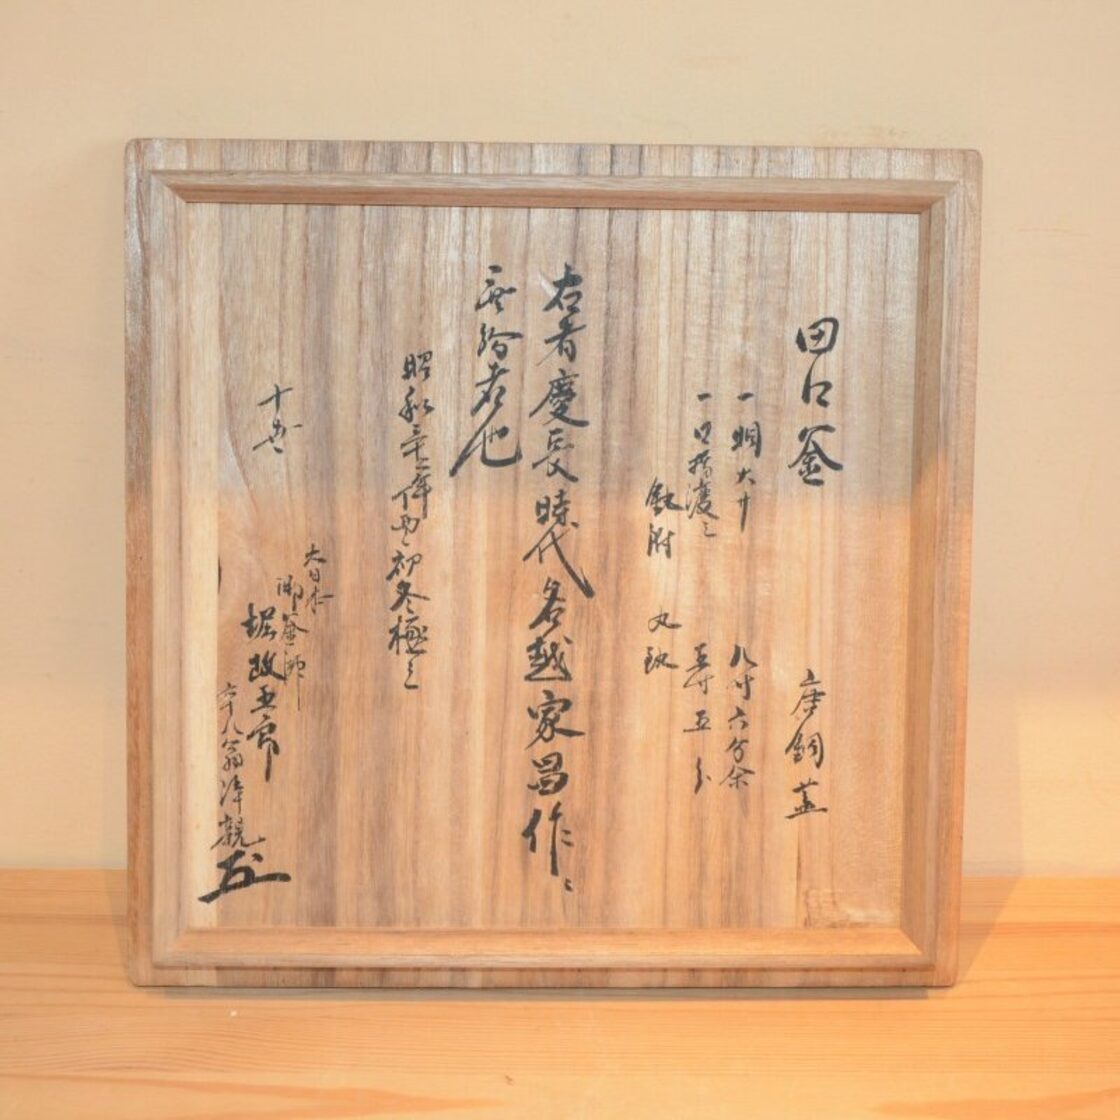 田口釜 唐銅蓋
一 胴大サ 九寸六分余
一 口指渡之 五寸五分
鈕附 丸鈕
右者慶長時代名越家昌作
無紛者也
昭和三十二年 初冬極之
十代
大日本
御釜師
堀故五郎
六十八翁浄親